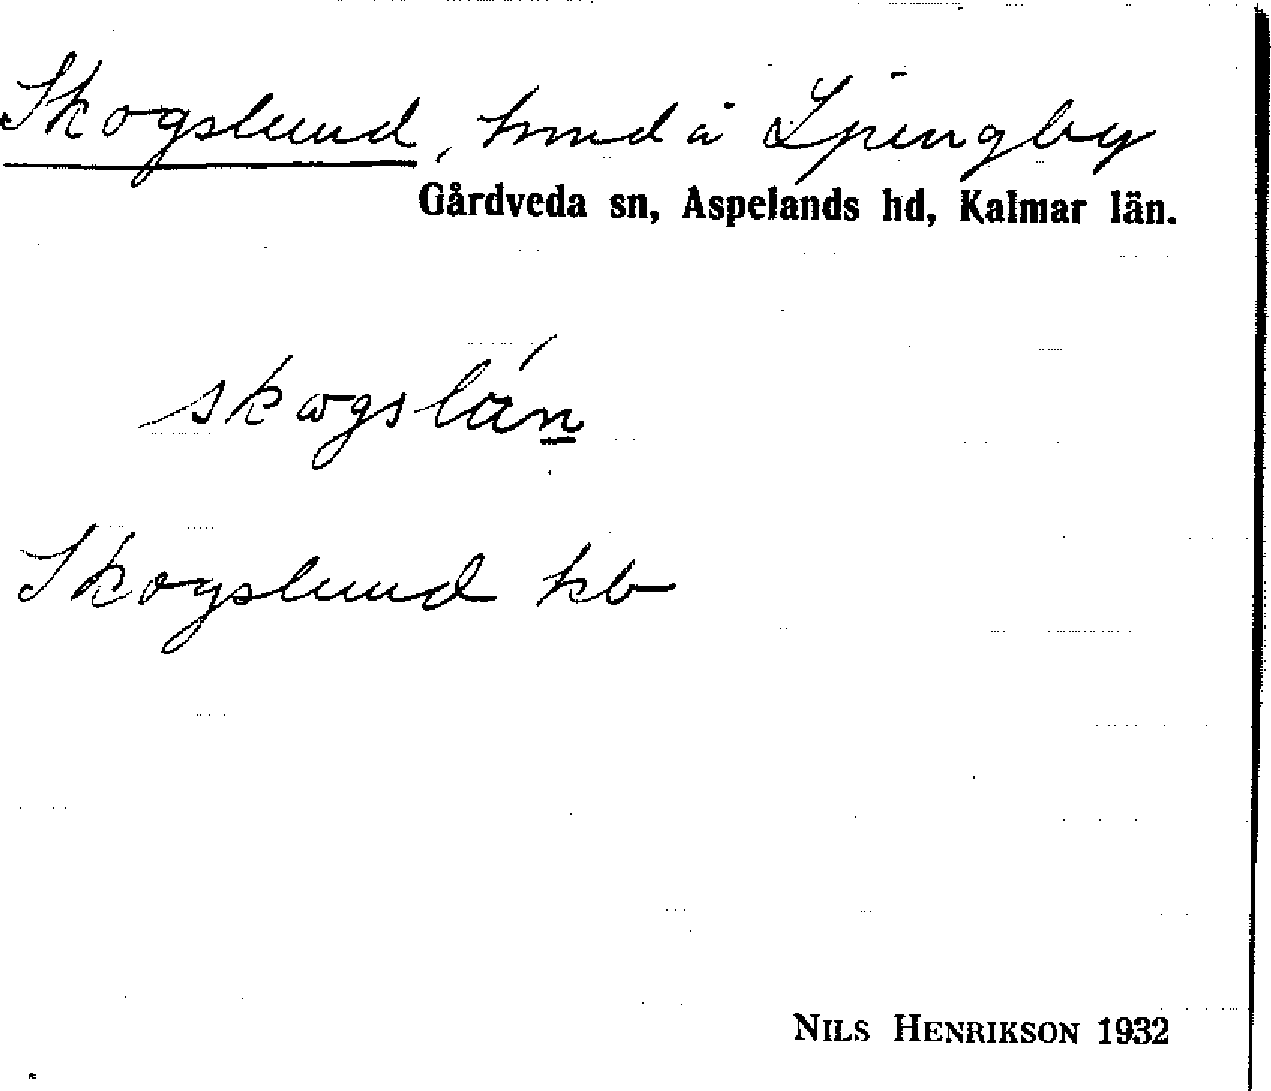 Skogslund, hmd å Ljungby
Gårdveda sn, Aspelands hd, Kalmar län.
skogslán
Skogslund kb
NILS HENRIKSON 1932